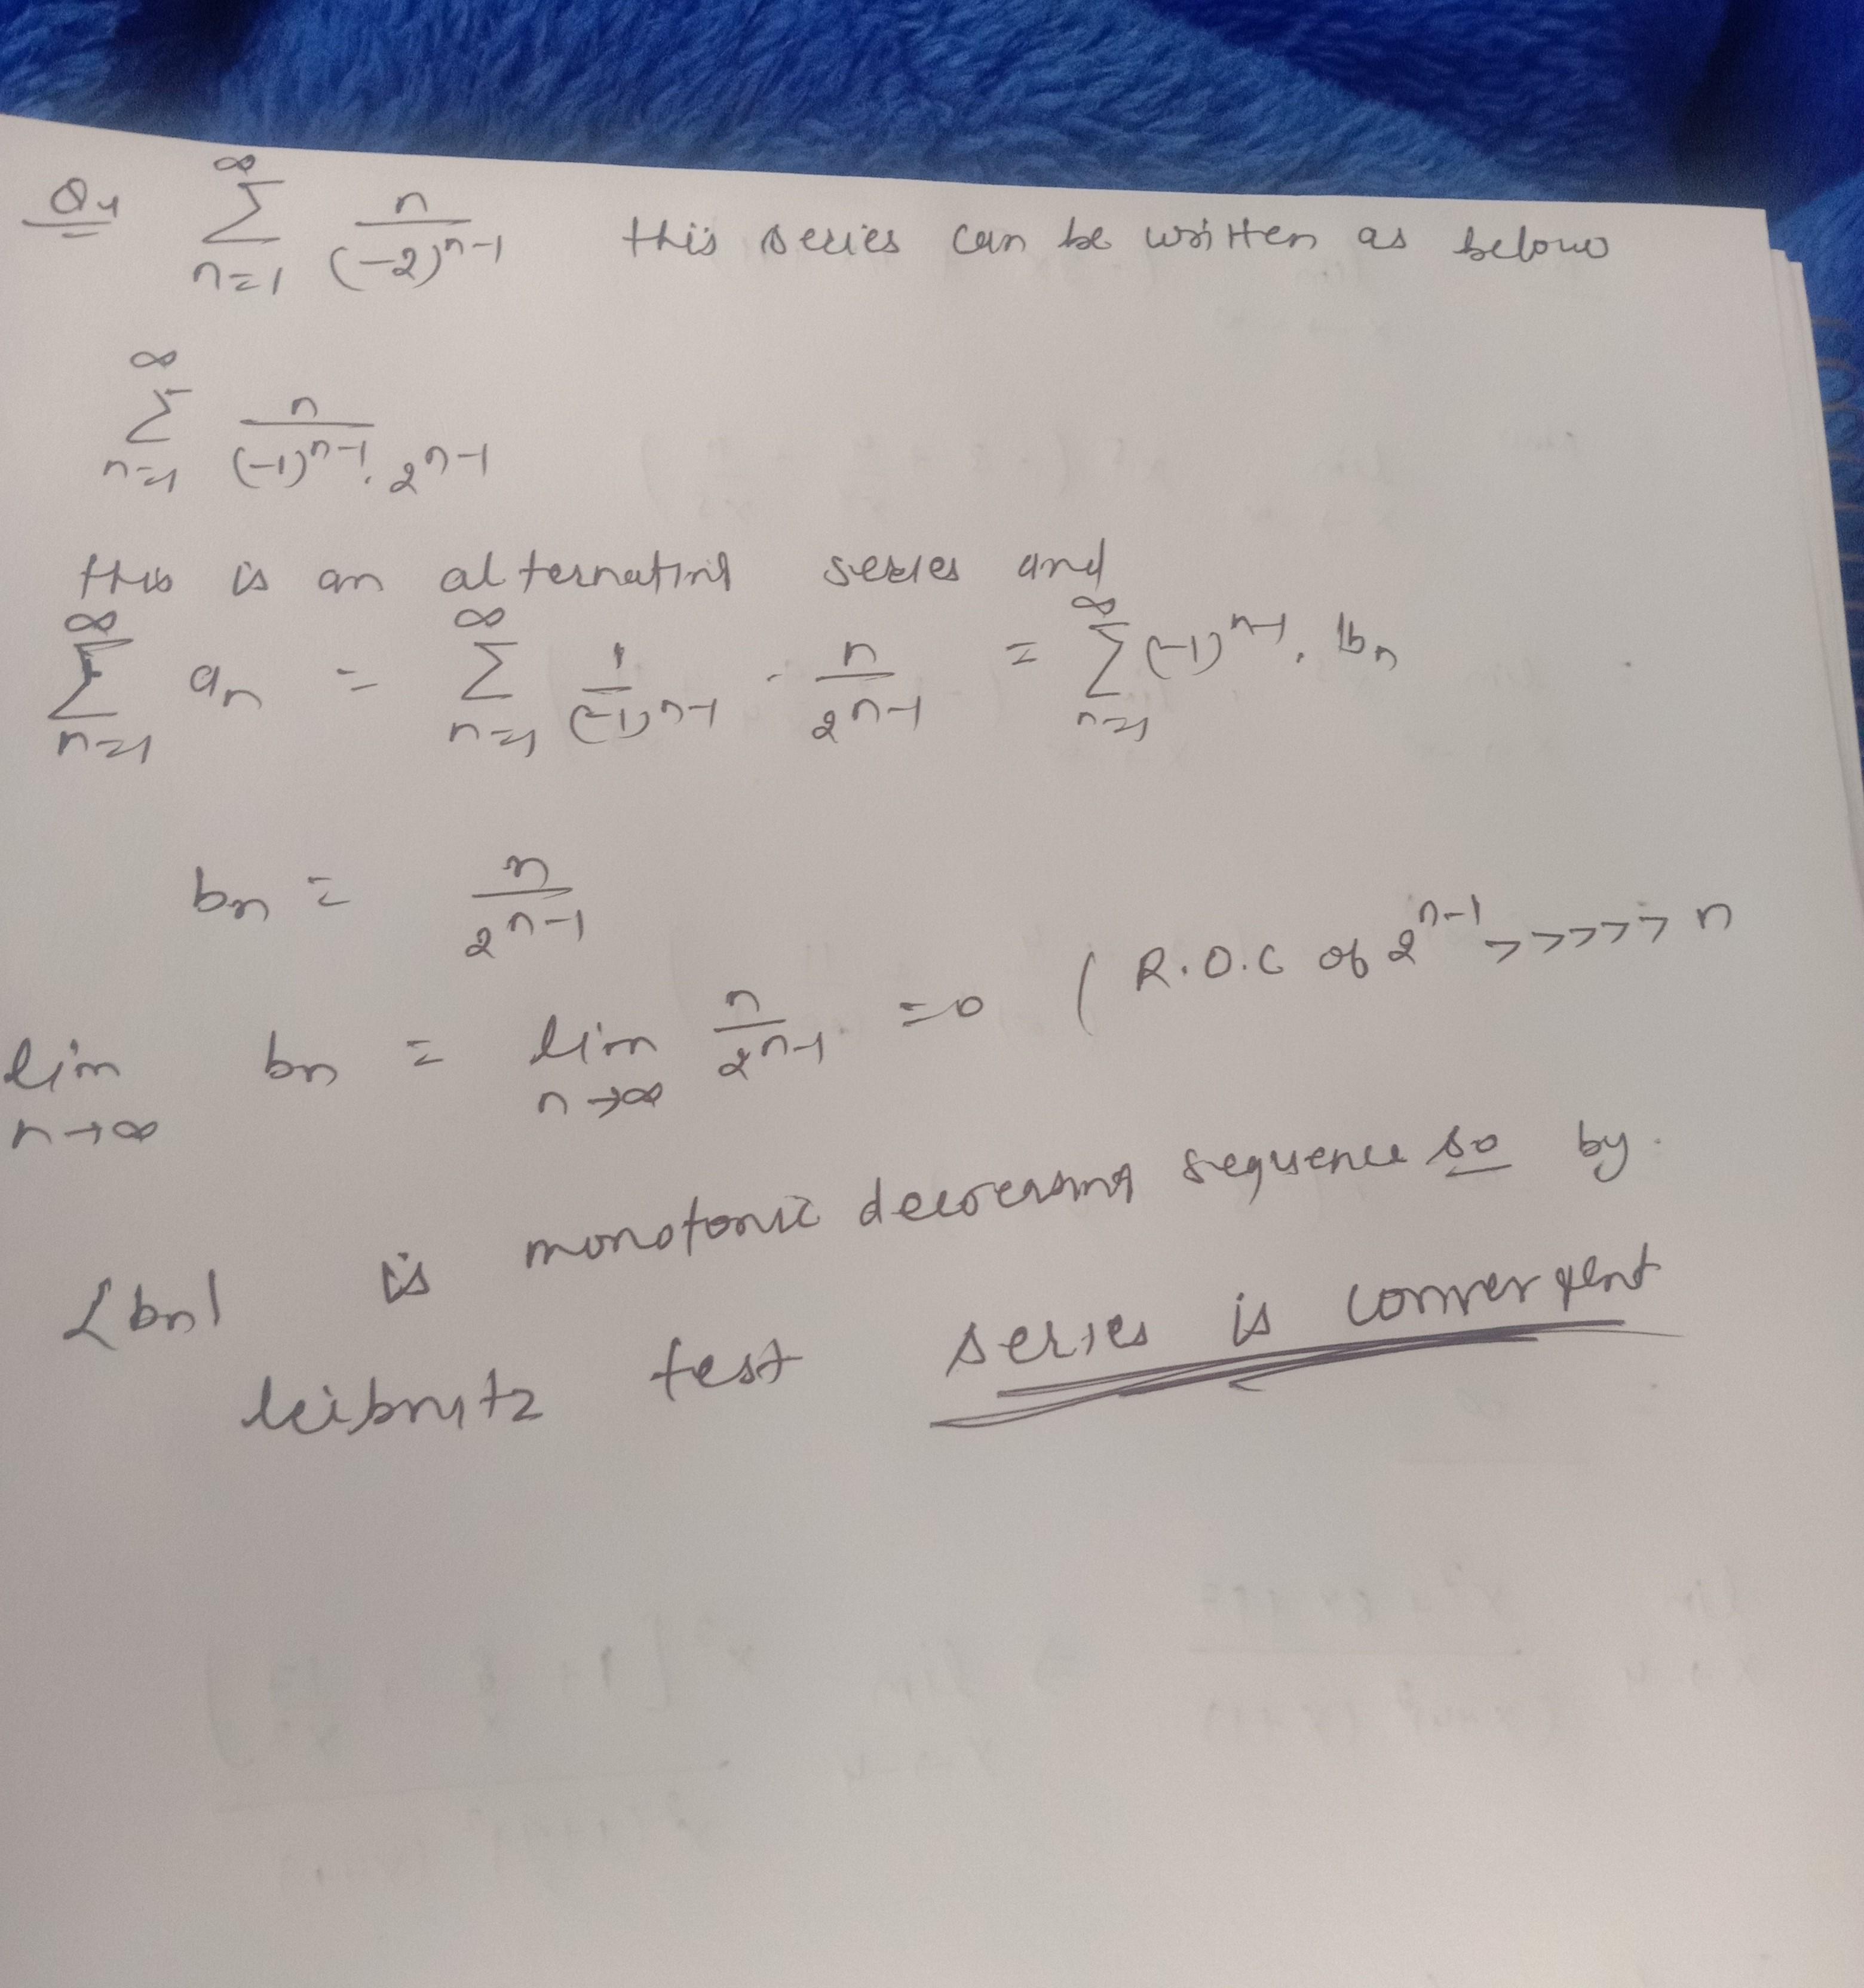 Q4 ∞∑n=1 n/(-2)^n-1 this series can be written as below
∞∑n=1 n/(-1)^n-1 . 2^n-1
this is an alternating series and
∞∑n=1 an = ∞∑n=1 1/(-1)^n-1 . n/2^n-1 = ∞∑n=1 (-1)^n-1 . bn
bn = n/2^n-1
lim n→∞ bn = lim n→∞ n/2^n-1 = 0 ( R.O.C of 2^n-1 >>>>> n
{bn} is monotonic decreasing sequence so by
leibnitz test series is convergent